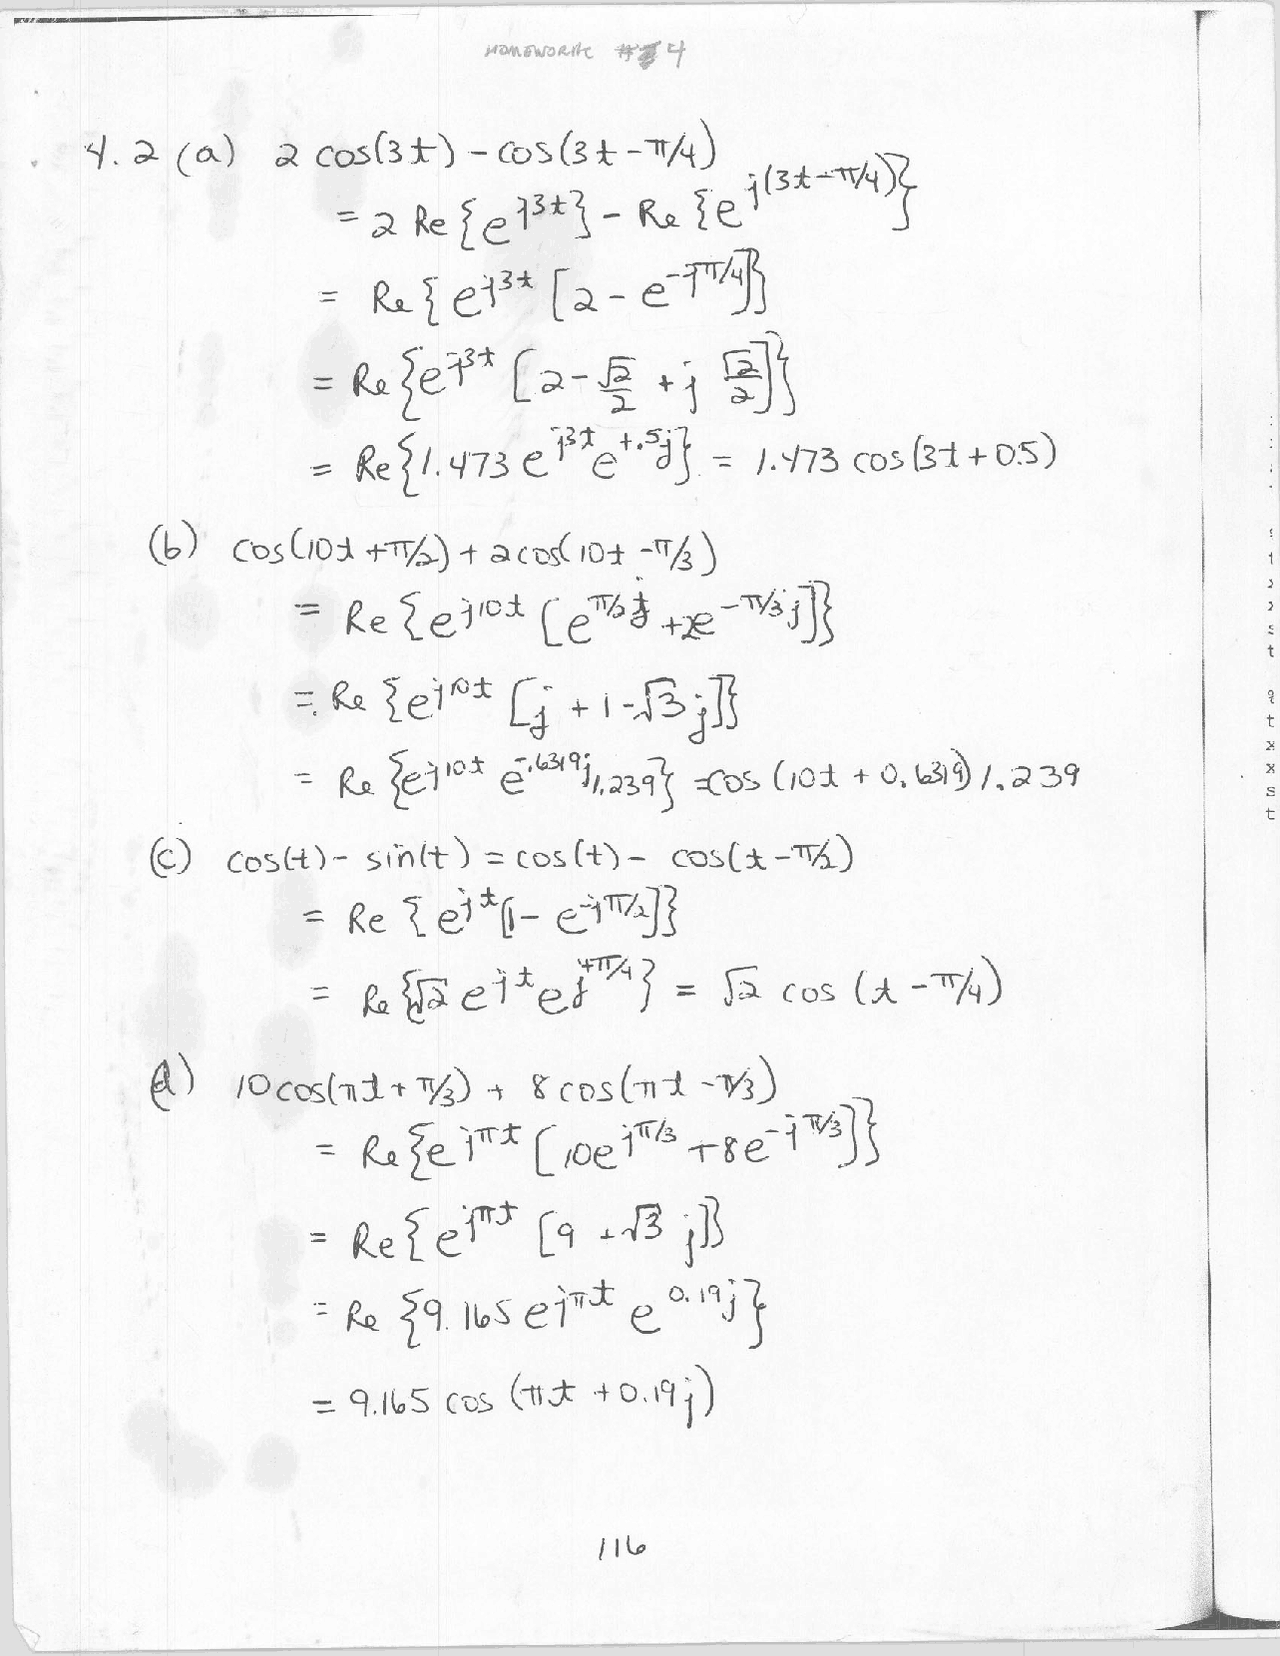 HOMEWORK # 4
4.2 (a) 2 cos(3t) - cos(3t - π/4)
= 2 Re{e^{j3t}} - Re{e^{j(3t-π/4)}}
= Re{e^{j3t} [2 - e^{-jπ/4}]}
= Re{e^{j3t} [2 - √2/2 + j √2/2]}
= Re{1.473 e^{j3t} e^{+.5j}} = 1.473 cos(3t + 0.5)
(b) cos(10t + π/2) + 2cos(10t - π/3)
= Re{e^{j10t} [e^{π/2 j} + 2e^{-π/3 j}]}
= Re{e^{j10t} [j + 1 - √3 j]}
= Re{e^{j10t} e^{-.6319j} 1.239} = cos(10t + 0.6319) 1.239
(c) cos(t) - sin(t) = cos(t) - cos(t - π/2)
= Re{e^{jt} [1 - e^{-jπ/2}]}
= Re{√2 e^{jt} e^{j+π/4}} = √2 cos(t - π/4)
d) 10cos(πt + π/3) + 8cos(πt - π/3)
= Re{e^{jπt} [10e^{jπ/3} + 8e^{-jπ/3}]}
= Re{e^{jπt} [9 + √3 j]}
= Re{9.165 e^{jπt} e^{0.19j}}
= 9.165 cos(πt + 0.19j)
116